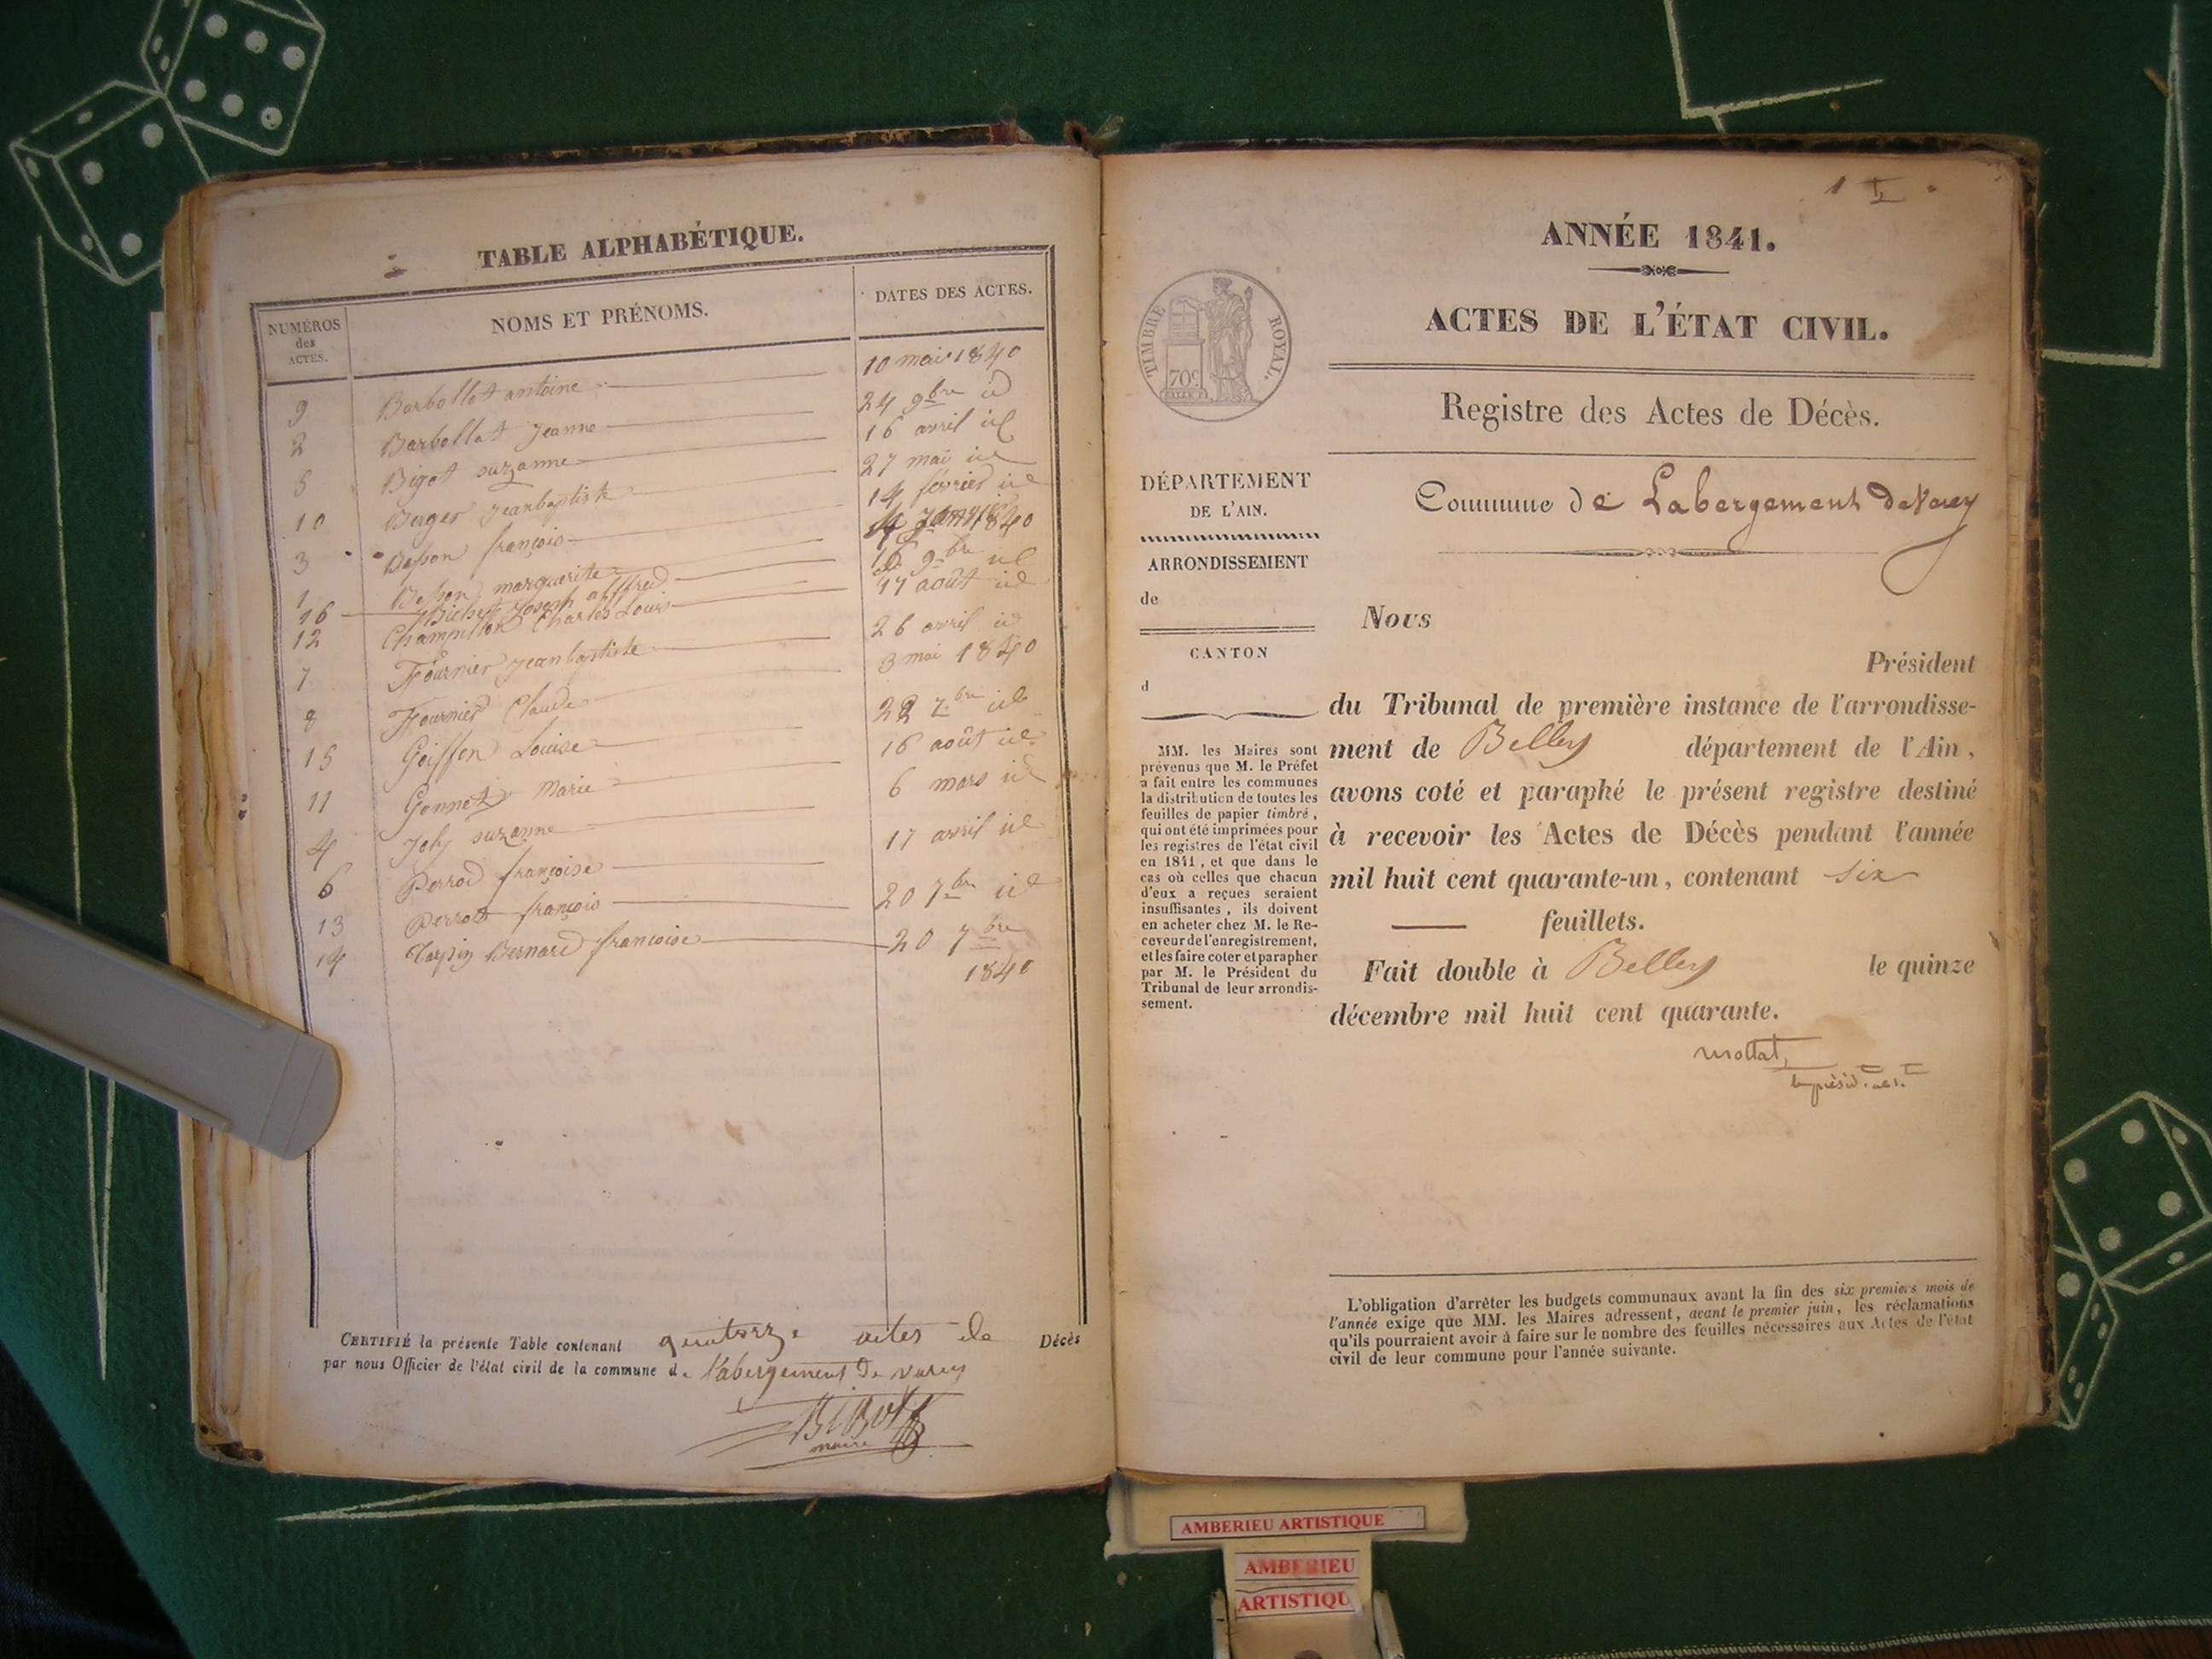 TABLE ALPHABÉTIQUE.
NUMÉROS des ACTES. NOMS ET PRÉNOMS. DATES DES ACTES.
9 Barbollat antoine 10 mai 1840
2 Barbollat Jeanne 24 9bre id
5 Bigot suzanne 16 avril id
10 Berger Jeanbaptiste 27 mai id
3 Besson françois 14 février id
1 Besson marguerite 1840
16 Joseph 16 9bre id
12 Champillon Charles Louis 17 août id
7 Fournier Jeanbaptiste 26 avril id
8 Fournier Claude 3 mai 1840
15 Goiffon Louise 22 7bre id
11 Gonnet Marie 16 août id
4 Joly suzanne 6 mars id
6 Perrod françoise 17 avril id
13 Perrod françois 20 7bre id
14 Tarpin Bernard francoise 20 7bre
1840
CERTIFIÉ la présente Table contenant quatorze actes de Décès
par nous Officier de l'état civil de la commune de l'abergement de varey
BiBot
maire
1
ANNÉE 1841.
ACTES DE L'ÉTAT CIVIL.
TIMBRE ROYAL.
70c
Registre des Actes de Décès.
Commune de Labergement deVarey
DÉPARTEMENT
DE L'AIN.
ARRONDISSEMENT
de
CANTON
d
MM. les Maires sont
prévenus que M. le Préfet
a fait entre les communes
la distribution de toutes les
feuilles de papier timbré,
qui ont été imprimées pour
les registres de l'état civil
en 1841, et que dans le
cas où celles que chacun
d'eux a reçues seraient
insuffisantes, ils doivent
en acheter chez M. le Re-
ceveur de l'enregistrement,
et les faire coter et parapher
par M. le Président du
Tribunal de leur arrondis-
sement.
Nous
Président
du Tribunal de première instance de l'arrondisse-
ment de Belley département de l'Ain,
avons coté et paraphé le présent registre destiné
à recevoir les Actes de Décès pendant l'année
mil huit cent quarante-un, contenant six
feuillets.
Fait double à Belley le quinze
décembre mil huit cent quarante.
mottat,
L'obligation d'arrêter les budgets communaux avant la fin des six premiers mois de
l'année exige que MM. les Maires adressent, avant le premier juin, les réclamations
qu'ils pourraient avoir à faire sur le nombre des feuilles nécessaires aux Actes de l'état
civil de leur commune pour l'année suivante.
AMBERIEU ARTISTIQUE
AMBERIEU
ARTISTIQU